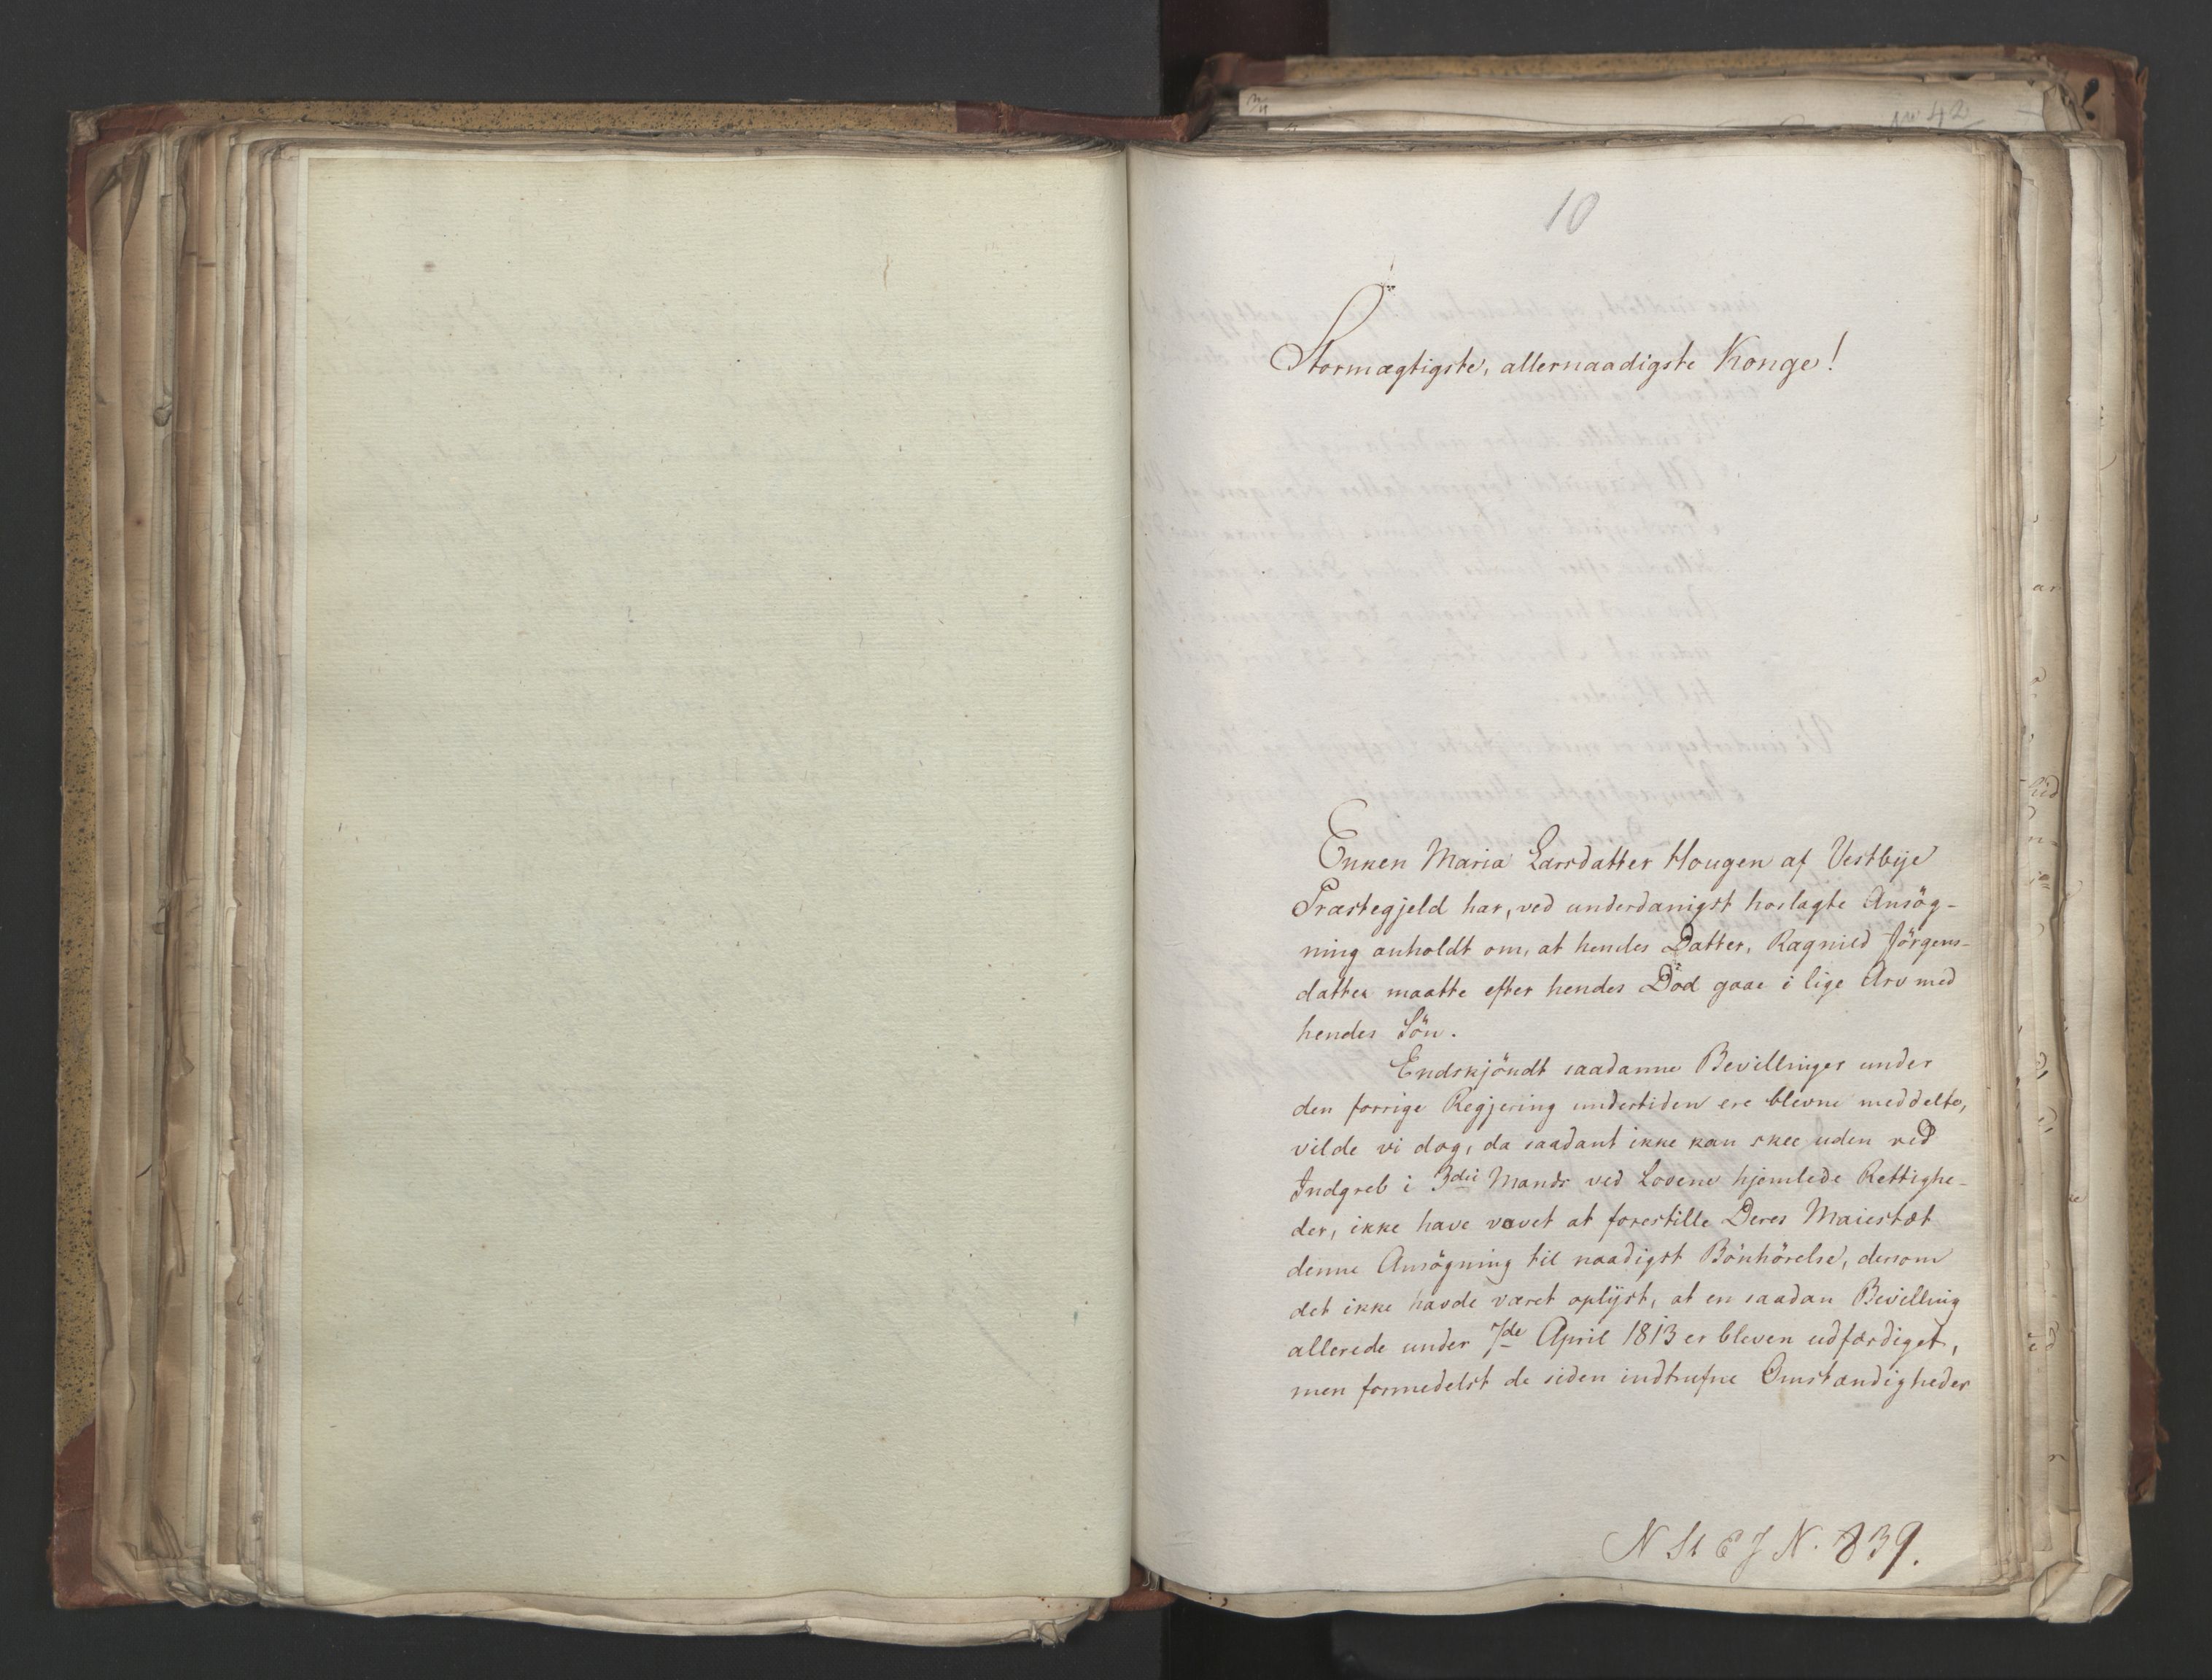 No 42
10
Stormægtigste, allernaadigste Konge!
Enken Maria Larsdatter Hougen af Vestbye
Præstegjeld har, ved underdanigst hoslagte Ansøg-
ning anholdt om, at hendes Datter, Ragnild Jørgens-
datter maatte efter hendes Död gaae i lige Arv med
hendes Sön.
Endskjöndt saadanne Bevillinger under
den forrige Regjering undertiden ere blevne meddelte,
vilde vi dog, da saadant ikke kan skee uden ved
Indgreb i 3die Mands ved Lovene hjemlede Rettighe-
der, ikke have vovet at forestille Deres Maiestæt
denne Ansögning til naadigst Bönhörelse, dersom
det ikke havde været oplÿst, at en saadan Bevilling
allerede under 7de April 1813 er bleven udfærdiget,
men formedelst de siden indtrufne Omstændigheder
N St E J N. 839.